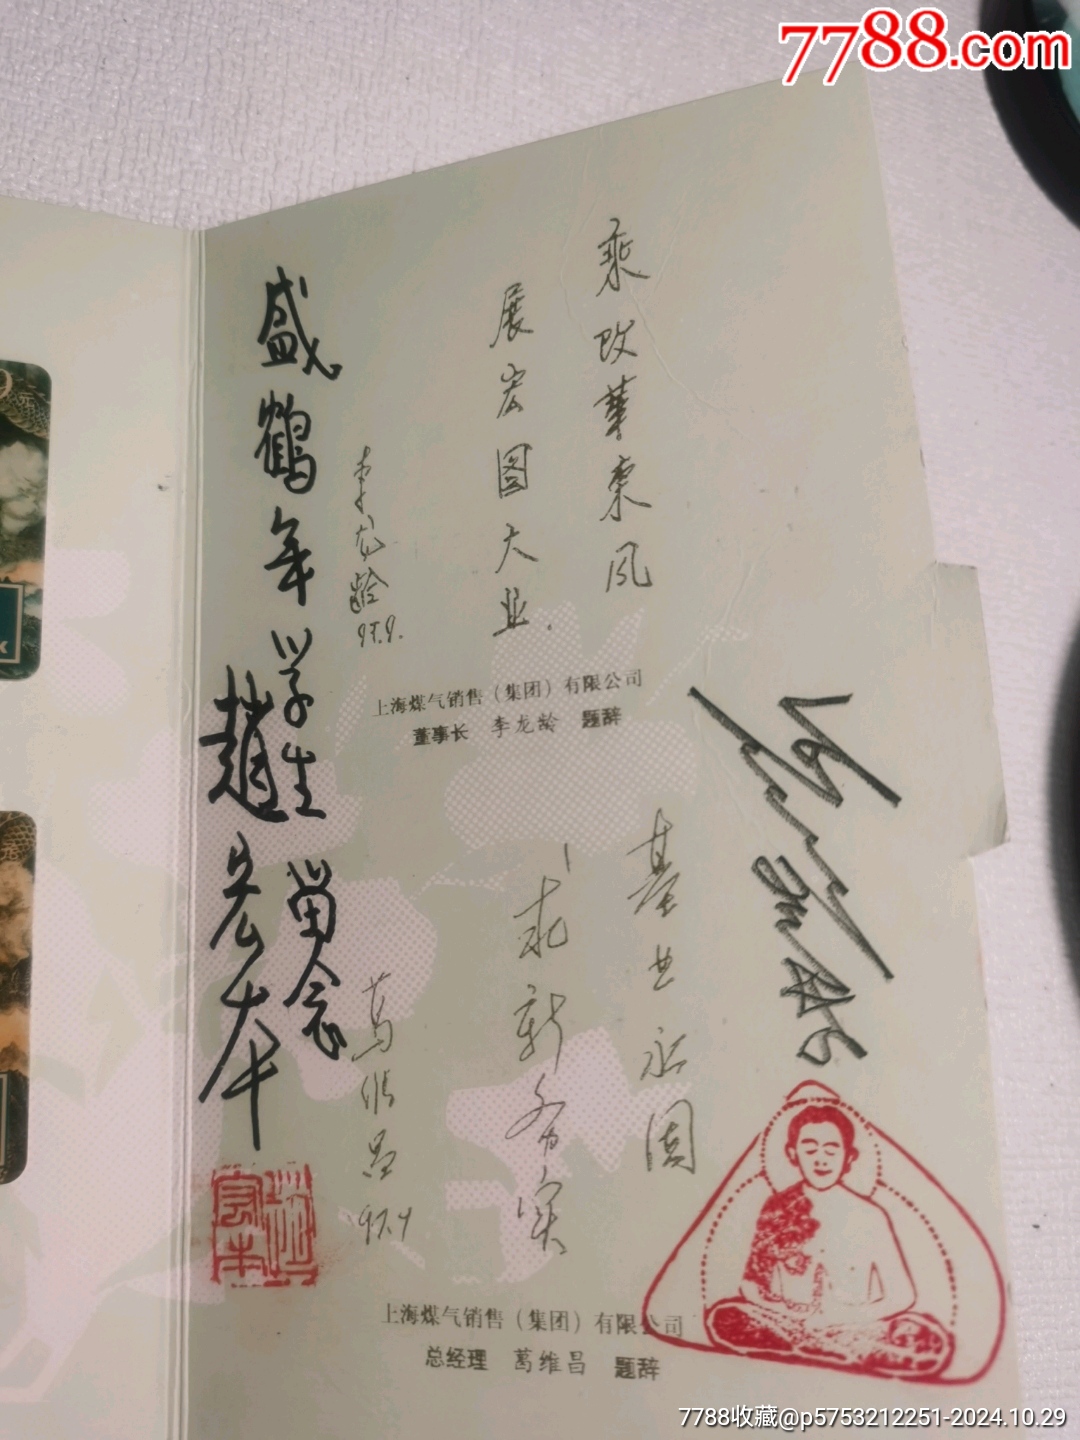 7788.com
乘改革东风
展宏图大业.
李龙龄
97.9.
上海煤气销售（集团）有限公司
董事长 李龙龄 题辞
盛鹤年学生留念
赵宏本
基业永固
求新务实
葛维昌
97.9
上海煤气销售（集团）有限公司
总经理 葛维昌 题辞
7788收藏@p5753212251-2024.10.29